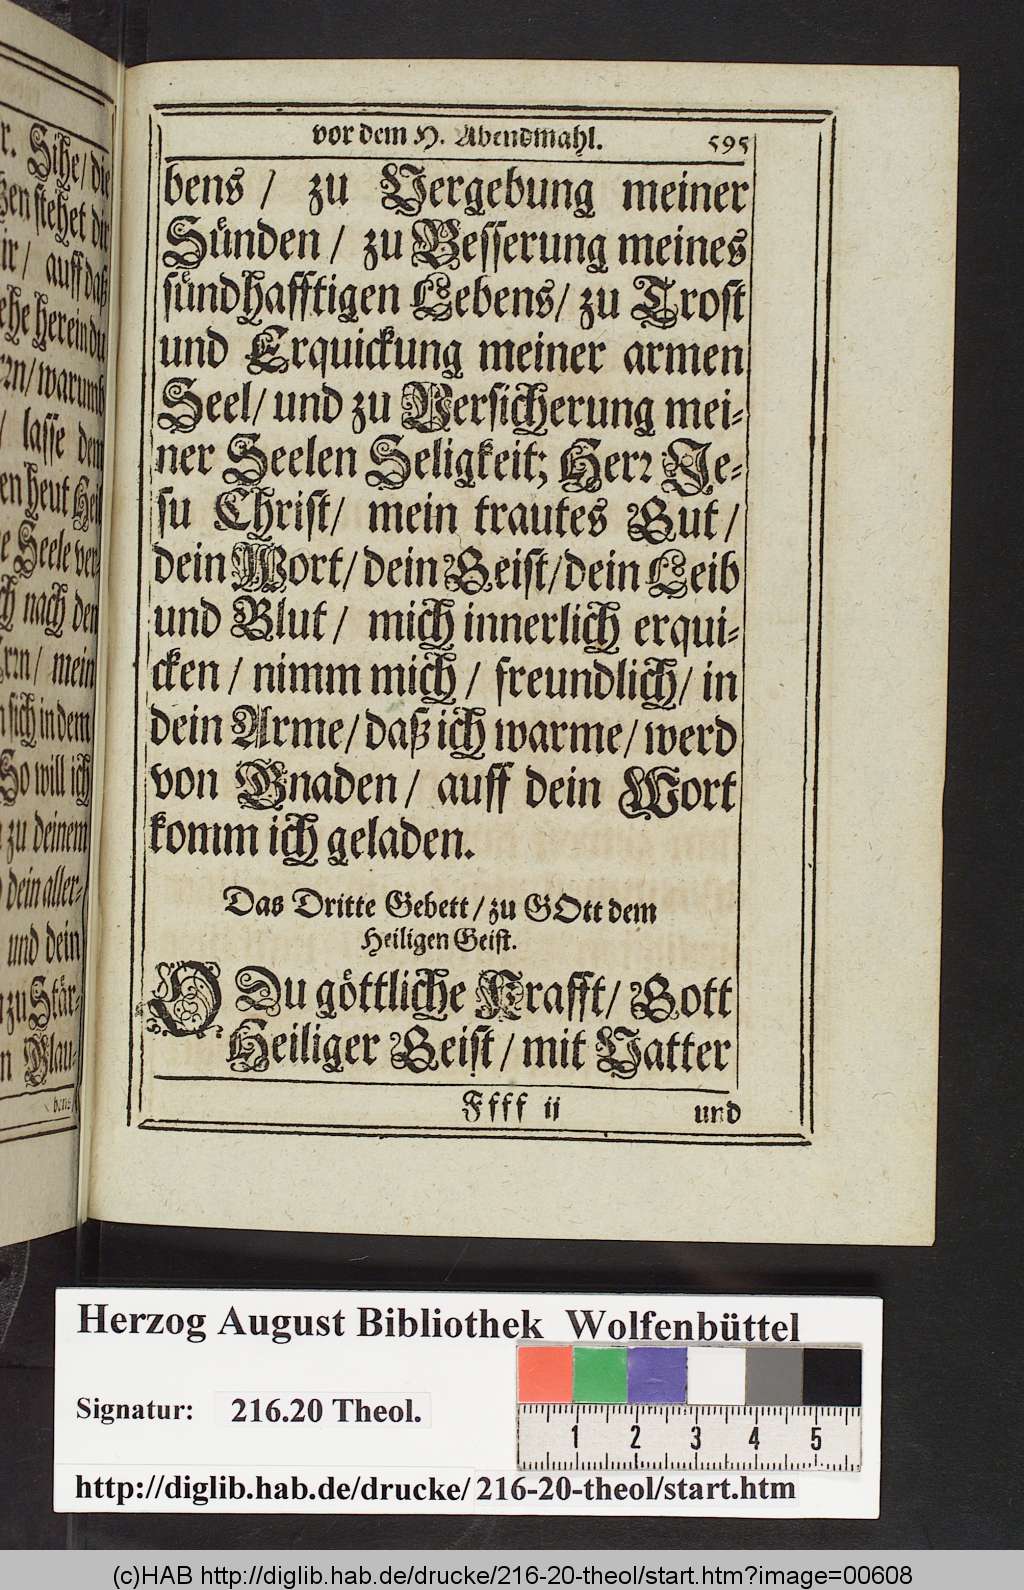 r. Sihe/ die
en stehet dir
ir/ auff daß
ehe herein du
rrn/ warumb
/ lasse dem
en heut Heil
e Seele ver-
ch nach den
rrn/ mein
sich in dem
So will ich
zu deinem
dein aller-
und dein
zu Stär-
n Glau-
bens/
vor dem H. Abendmahl. 595
bens / zu Vergebung meiner
Sünden / zu Besserung meines
sündhafftigen Lebens/ zu Trost
und Erquickung meiner armen
Seel/ und zu Versicherung mei-
ner Seelen Seligkeit; Herr Je-
su Christ/ mein trautes Gut/
dein Wort/ dein Geist/dein Leib
und Blut/ mich innerlich erqui-
cken / nimm mich / freundlich/ in
dein Arme/ daß ich warme/ werd
von Gnaden / auff dein Wort
komm ich geladen.
Das Dritte Gebett/ zu GOtt dem
Heiligen Geist.
O Du göttliche Krafft/ Gott
Heiliger Geist/ mit Vatter
Ffff ii und
Herzog August Bibliothek Wolfenbüttel
Signatur: 216.20 Theol.
1 2 3 4 5
http://diglib.hab.de/drucke/ 216-20-theol/start.htm
(c)HAB http://diglib.hab.de/drucke/216-20-theol/start.htm?image=00608